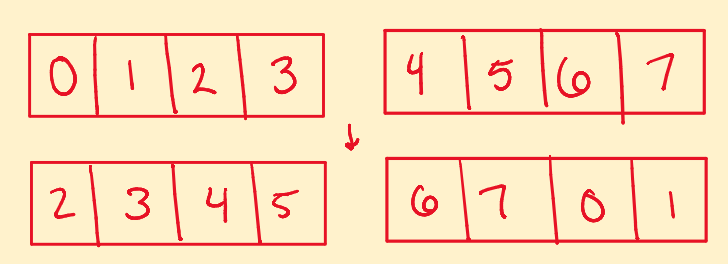 0 1 2 3 4 5 6 7
2 3 4 5 6 7 0 1